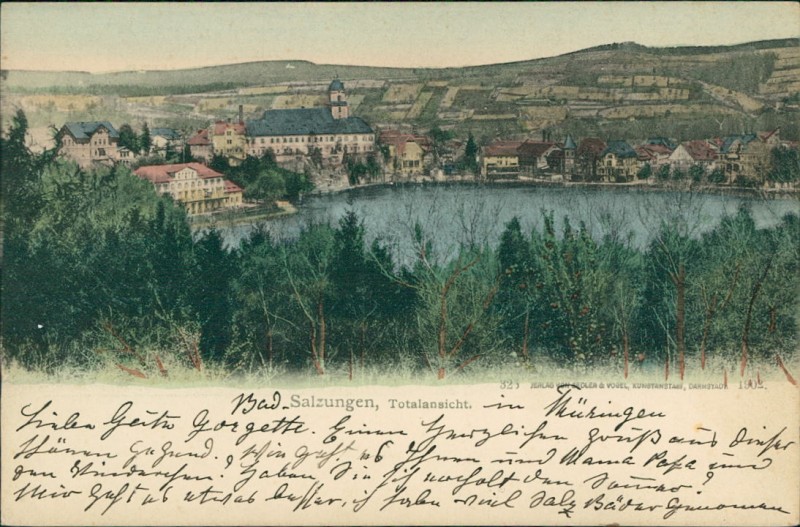 323 VERLAG VON ZEDLER & VOGEL, KUNSTANSTALT, DARMSTADT. 1902.
Bad-Salzungen, Totalansicht. in Thüringen
Liebe Gorgette. Einen Herzlichen Gruß aus dieser
schönen Gegend. Wie geht es Ihnen und Mama Papa und
den Kinderchen? Haben Sie sich erholt den Sommer?
Mir geht es etwas besser, ich habe viel Salz Bäder genommen